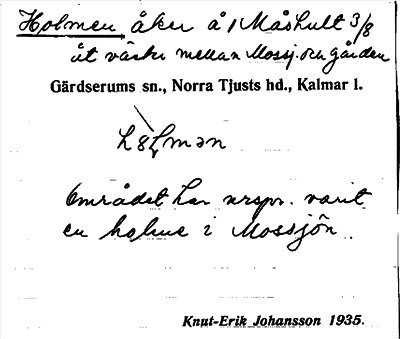 Holmen åker å 1 Måshult 3/8
åt väster mellan Mossj. och gården
Gärdserums sn., Norra Tjusts hd., Kalmar l.
Området har urspr. varit
en holme i Mossjön
Knut-Erik Johansson 1935.